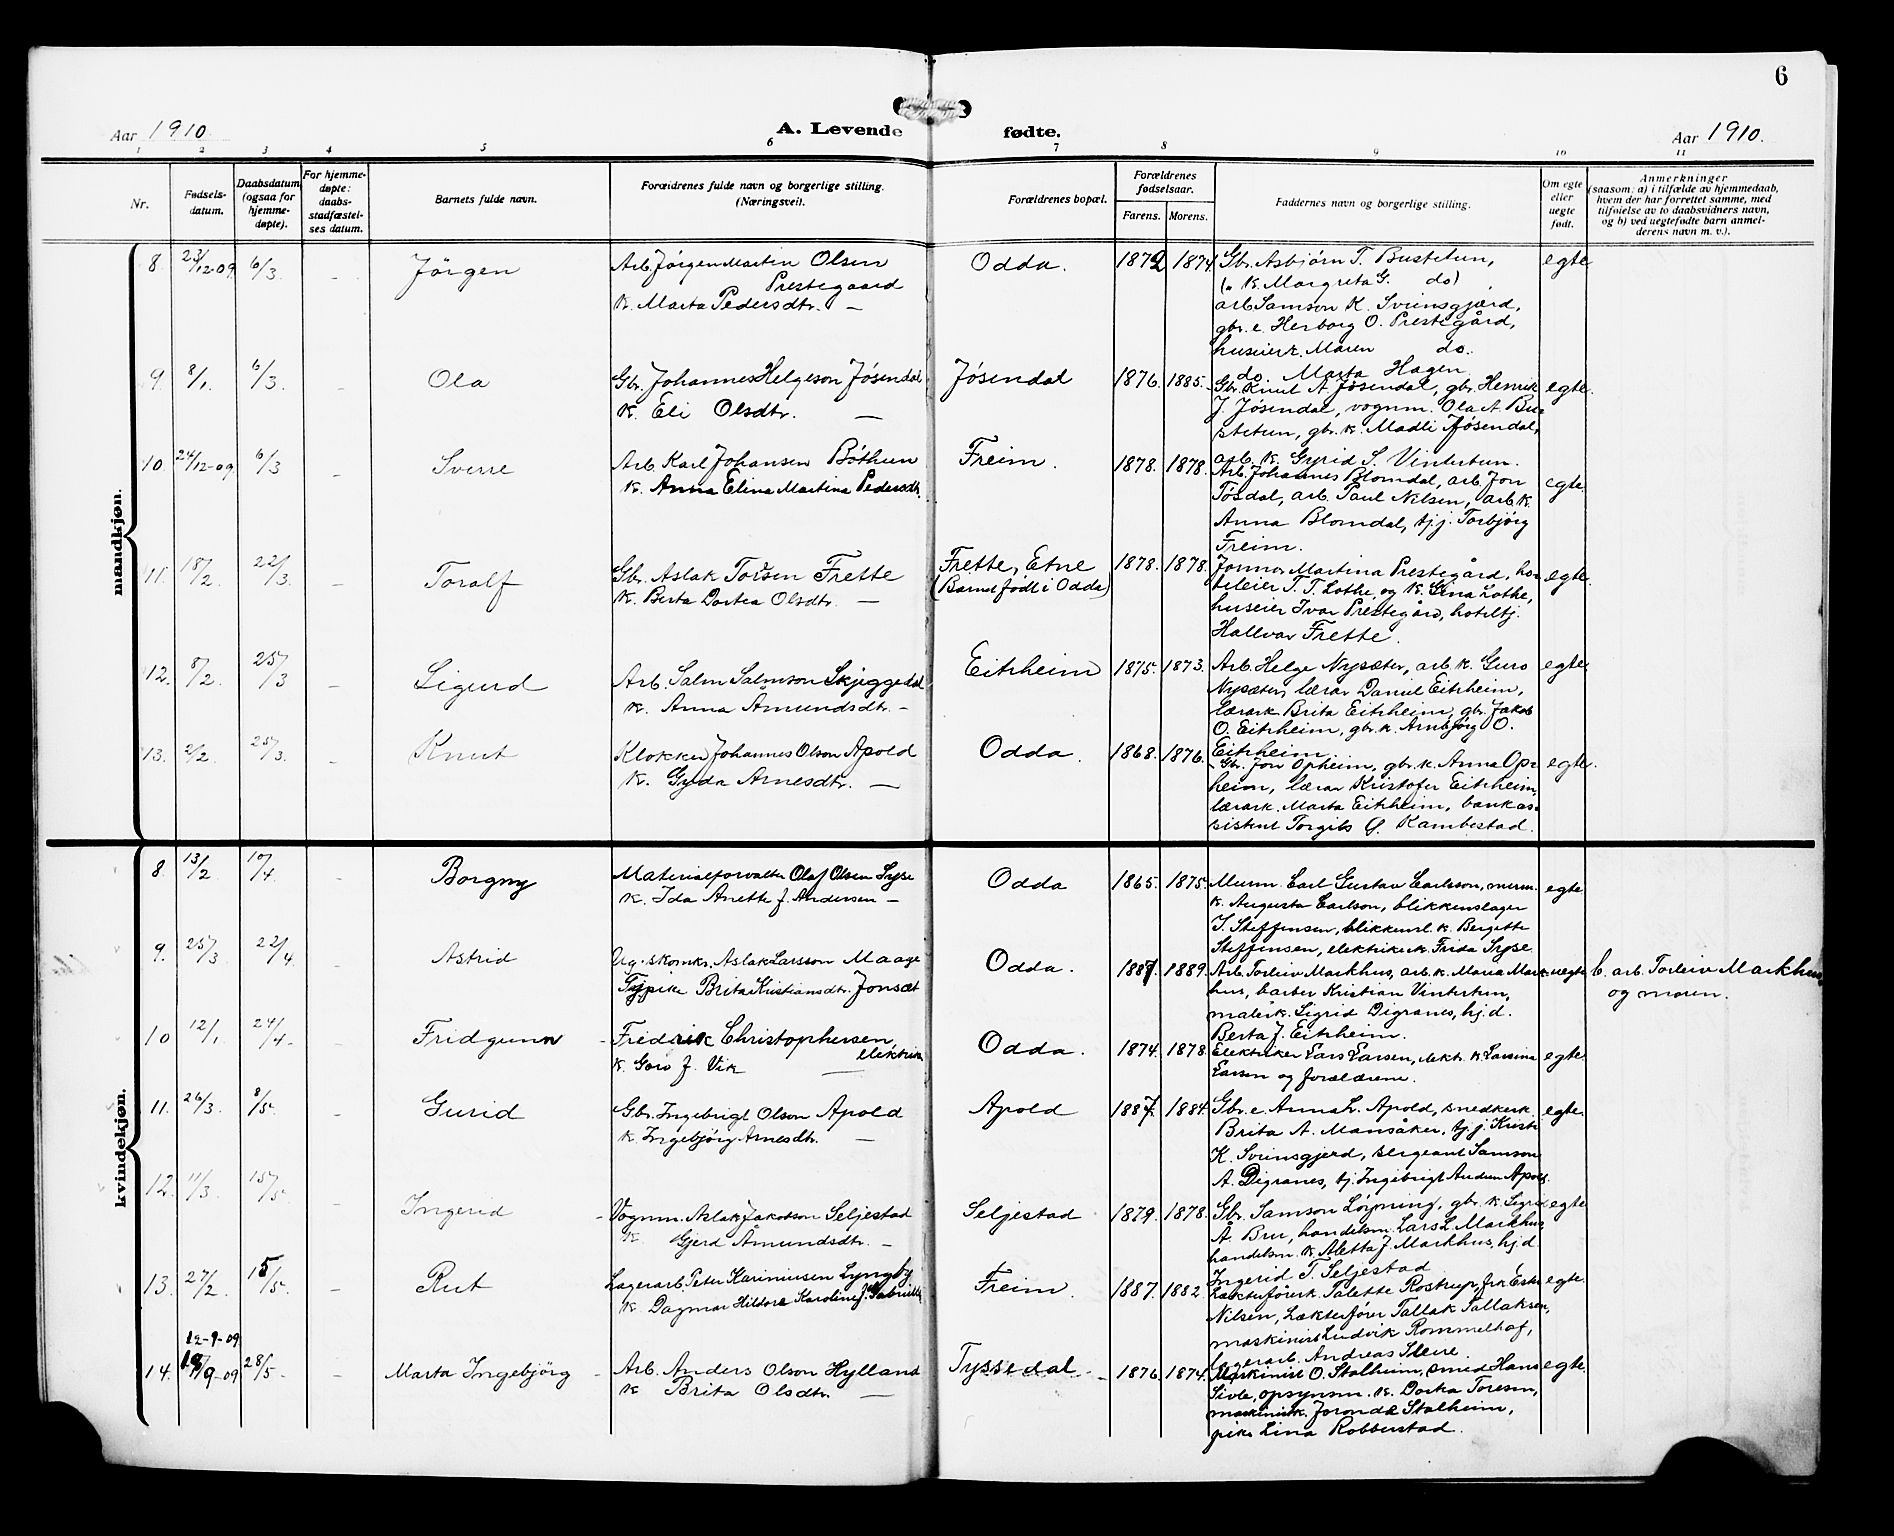 6
Aar 1910.
A. Levende fødte.
Aar 1910.
1 2 3 4 5 6 7 8 9 10 11
Nr.
Fødsels-
datum.
Daabsdatum
(ogsaa for
hjemme-
døpte).
For hjemme-
døpte:
daabs-
stadfæstel-
ses datum.
Barnets fulde navn.
Forældrenes fulde navn og borgerlige stilling.
(Næringsvei).
Forældrenes bopæl.
Forældrenes
fødselsaar.
Farens. Morens.
Faddernes navn og borgerlige stilling.
Om egte
eller
uegte
født.
Anmerkninger
(saasom: a) i tilfælde av hjemmedaab,
hvem der har forrettet samme, med
tilføielse av to daabsvidners navn,
og b) ved uegtefødte barn anmel-
derens navn m. v.).
mandkjøn.
8. 23/12-09 6/3 - Jörgen
Arb. Jörgen Martin Olsen
Prestegaard
K. Marta Pedersdtr. —
Odda. 1872 1874
Gbr. Asbjørn T. Bustetun,
(" K. Margreta G. do)
arb. Samson K. Svinsgjærd,
gbr. e. Herborg O. Prestegård,
huseierk. Maren do.
do Marta Hagen
egte
9. 8/1. 6/3. - Ola
Gbr. Johannes Helgeson Jøsendal
K. Eli Olsdtr. —
Jøsendal 1876. 1885.
Gbr. Knut A. Jøsendal, gbr. Henrik
J. Jøsendal, vognm. Ola A. Bu-
stetun, gbr. k. Madli Jøsendal,
arb. k. Gyrid S. Vintertun.
egte.
10. 24/12-09 6/3 - Sverre
Arb. Karl Johansen Böthun
K. Anna Elina Martina Pedersdtr.
Freim. 1878. 1878.
Arb. Johannes Blomdal, arb. Jon
Tøsdal, arb. Paul Nilsen, arb. k.
Anna Blomdal, tj.j. Torbjörg
Freim.
egte.
11. 18/2. 22/3. - Toralf
Gbr. Aslak Torsen Frette
K. Berta Dortea Olsdtr. —
Frette, Etne
(Barnet født i Odda)
1878. 1878.
Jomnov Martina Prestegård, ho-
teleier T. T. Lothe, og K. Gina Lothe,
huseier Ivar Prestegård, hoteltj.
Hallvar Frette.
egte.
12. 8/2. 25/3 - Sigurd
Arb. Salm Salmson Skjeggedal
K. Anna Åmundsdtr. —
Eitrheim 1875. 1873.
Arb. Helge Nysæter, arb. k. Guro
Nysæter, lærar Daniel Eitrheim,
lærark. Brita Eitrheim, gbr. Jakob
O. Eitrheim, gbr. k. Arnbjörg O.
Eitrheim.
egte
13. 2/2. 25/3. - Knut
Klokker Johannes Olson Apold
K. Gyda Arnesdtr. —
Odda. 1868. 1876.
Gbr. Jon Opheim, gbr. k. Anna Op-
heim, lærar Kristofer Eitrheim,
lærark. Marta Eitrheim, bankas-
sistent Torgils O. Kambestad.
egte.
kvindekjøn.
8. 13/2 10/4. - Borgny
Materialforvalter Olaf Olsen Syse
K. Ida Anette f. Andersen —
Odda 1865. 1875.
Murm. Carl Gustav Carlsson, murm.
k. Augusta Carlson, blikkenslager
I. Steffensen, blikkensl. k. Bergitte
Steffensen, elektrikerk. Frida Syse
egte
9. 25/3 22/4. - Astrid
Ug. skomkr. Aslak Larsson Maage
Pike Brita Kristiansdtr. Jonsæt
Odda. 1887. 1889.
Arb. Torleiv Markhus, arb. k. Maria Mark-
hus, barber Kristian Vintertun,
malerk. Sigrid Digranes, hj.d.
Berta J. Eitrheim.
uegte
b. arb. Torleiv Markhus
og moren.
10 12/1. 24/4. - Fridgunn
Fredrik Christophersen,
elektriker
K. Goro f. Vik —
Odda. 1874. 1878.
Elektriker Lars Larsen, elektr. k. Larsina
Larsen og forældrene.
egte
11. 26/3. 8/5. - Gurid
Gbr. Ingebrigt Olson Apold
K. Ingebjörg Arnesdtr. —
Apold 1887. 1884.
Gbr. e. Anna L. Apold, snedkerk.
Brita A. Mansåker, tj.j. Kristi
K. Svinsgjerd, sergeant Samson
A. Digranes, tj. Ingebrigt Andren Apold.
egte.
12. 11/3. 15/5. - Ingerid
Vognm. Aslak Jakobson Seljestad
K. Gjerd Åmundsdtr. —
Seljestad 1879. 1878.
Gbr. Samson Löyning, gbr. k. Sigrid
Å. Bru, handelsm. Lars L. Markhus,
handelsm. k. Aletta J. Markhus, hj.d.
Ingerid T. Seljestad
egte
13. 27/2. 15/5. - Rut
Lagerarb. Peter Kariniusen Lyngby
K. Dagmar Hildora Karoline f. Gabrielsen
Freim. 1887. 1882
Lækterførerk. Talette Rostrup, frk. Eske
Nilsen, Lækterfører Tallak Tallaksen,
maskinist Ludvik Rommelhof,
lagerarb. Andreas Steire.
egte.
12-9-09
14. 18/9-09 28/5. - Marta Ingebjörg
Arb. Anders Olson Hylland
K. Brita Olsdtr. —
Tyssedal. 1876. 1874.
Maskinist O. Stalheim, smed Hans
Sivle, opsynsm. k. Dorka Toresen,
maskinistk. Jorond Stalheim,
pike Lina Robberstad.
egte.